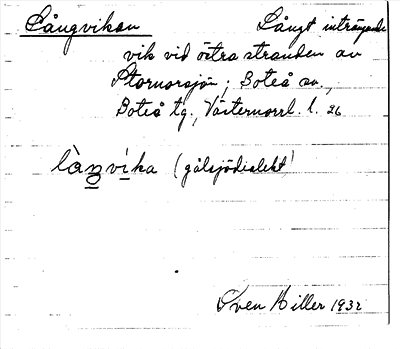 Långvikan Långt inträngande
vik vid östra stranden av
Stornorsjön; Boteå sn.,
Boteå tg., Västernorrl. l. 26
làŋvika (gålsjödialekt)
Sven Hiller 1932